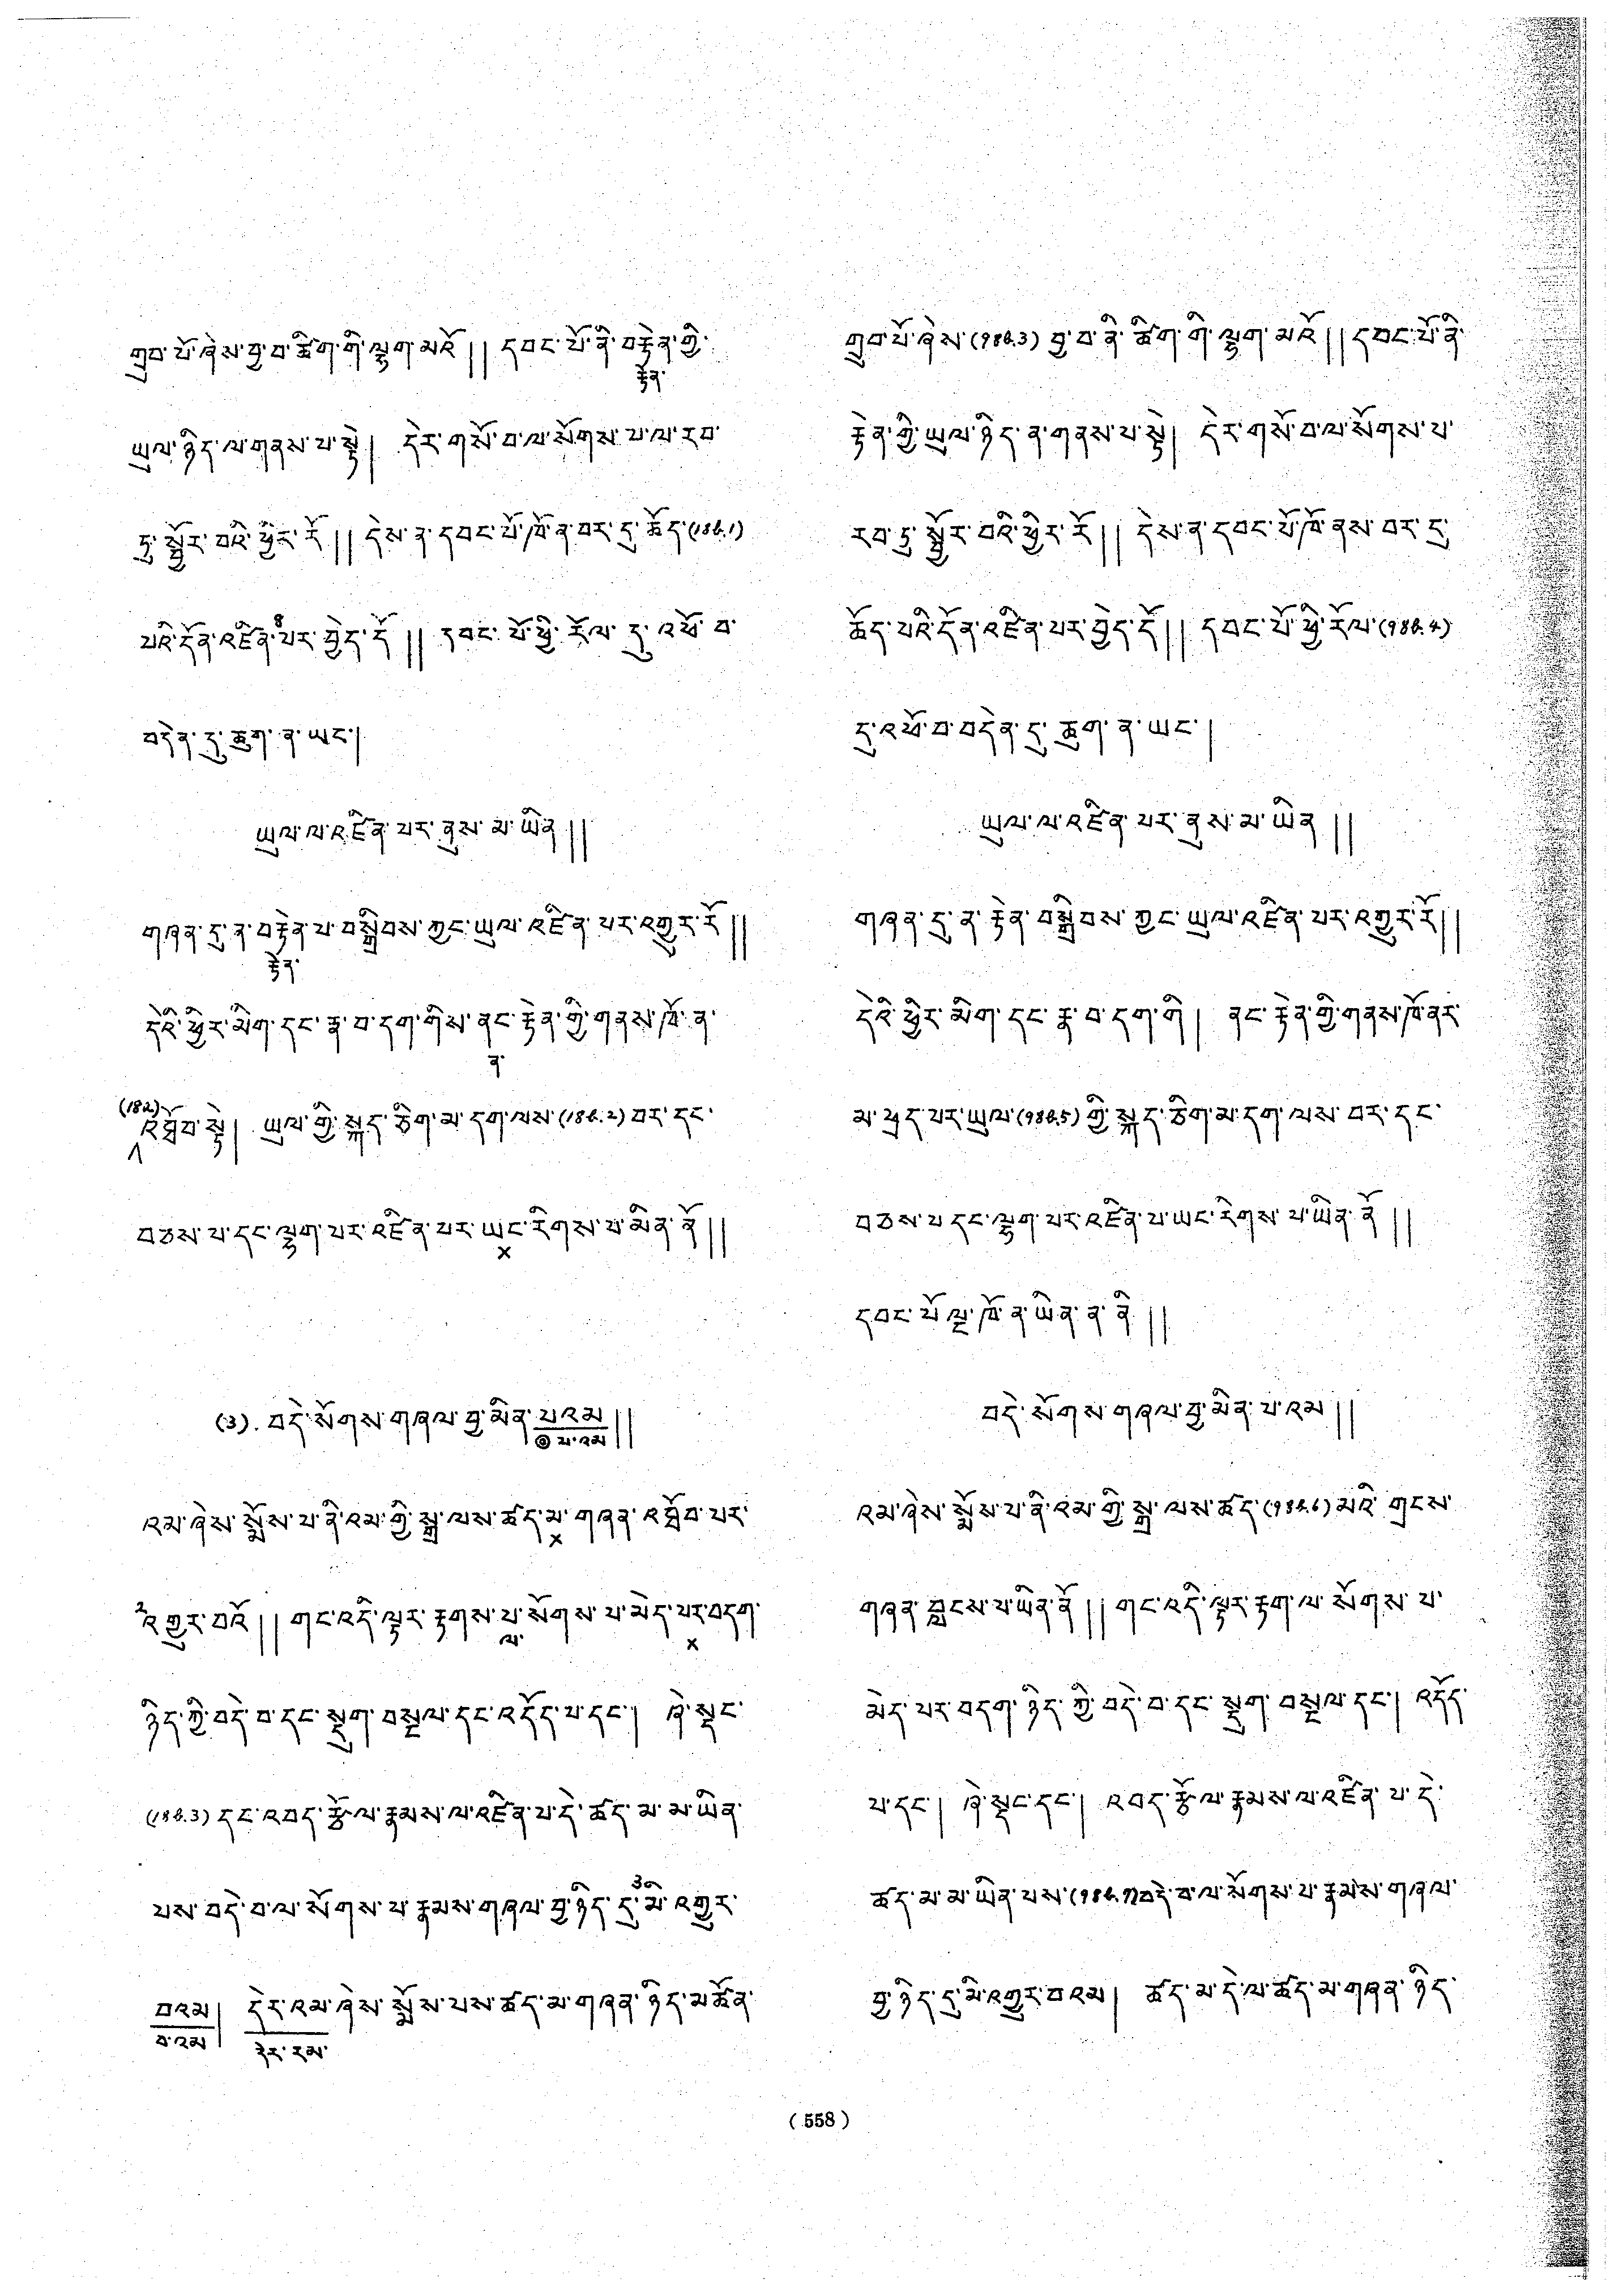 གྲུབ་པོ་ཞེས་བྱ་བ་ཚིག་གི་ལྷག་མའོ།། དབང་པོ་ནི་བརྟེན་གྱི་
རྟེན་
ཡུལ་ཉིད་ལ་གནས་པ་སྟེ། དེར་གསོ་བ་ལ་སོགས་པ་ལ་རབ་
ཏུ་སྦྱོར་བའི་ཕྱིར་རོ།། དེས་ན་དབང་པོ་ཁོ་ན་བར་དུ་ཆོད་(༡༨༤.༡)
པའི་དོན་འཛིན་པར་བྱེད་དོ།། དབང་པོ་ཕྱི་རོལ་དུ་འཕོ་བ་
བདེན་དུ་ཆུག་ན་ཡང་།
ཡུལ་ལ་འཛིན་པར་ནུས་མ་ཡིན།།
གཞན་དུ་ན་བརྟེན་པ་བསྒྲིབས་ཀྱང་ཡུལ་འཛིན་པར་འགྱུར་རོ།།
རྟེན་
དེའི་ཕྱིར་མིག་དང་རྣ་བ་དག་གིས་ནང་རྟེན་གྱི་གནས་ཁོ་ན་
ན་
(༡༨༢)
འཐོབ་སྟེ། ཡུལ་གྱི་སྐད་ཅིག་མ་དག་ལས་(༡༨༤.༢)བར་དང་
བཅས་པ་དང་ལྷག་པར་འཛིན་པར་ཡང་རིགས་པ་མིན་ནོ།།
×
(༣). བདེ་སོགས་གཞལ་བྱ་མིན་པ་འམ།།
པ་འམ
འམ་ཞེས་སྨོས་པ་ནི་འམ་གྱི་སྒྲ་ལས་ཚད་མ་གཞན་འཐོབ་པར་
×
༢འགྱུར་བའོ།། གང་འདི་ལྟར་རྟགས་པ་སོགས་པ་མེད་པར་བདག་
ལ་ ×
ཉིད་ཀྱི་བདེ་བ་དང་སྡུག་བསྔལ་དང་འདོད་པ་དང་། ཞེ་སྡང་
(༡༨༤.༣)དང་འབད་རྩོལ་རྣམས་ལ་འཛིན་པ་དེ་ཚད་མ་མ་ཡིན་
པས་བདེ་བ་ལ་སོགས་པ་རྣམས་གཞལ་བྱ་ཉིད་དུ་༣མི་འགྱུར་
བ་འམ། དེར་འམ་ཞེས་སྨོས་པས་ཚད་མ་གཞན་ཉིད་མཚོན་
བ་འམ དེར་རམ་
གྲུབ་པོ་ཞེས་(༡༨༤.༣)བྱ་བ་ནི་ཚིག་གི་ལྷག་མའོ།།དབང་པོ་ནི་
རྟེན་གྱི་ཡུལ་ཉིད་ན་གནས་པ་སྟེ། དེར་གསོ་བ་ལ་སོགས་པ་
རབ་ཏུ་སྦྱོར་བའི་ཕྱིར་རོ།། དེས་ན་དབང་པོ་ཁོ་ནས་བར་དུ་
ཆོད་པའི་དོན་འཛིན་པར་བྱེད་དོ།། དབང་པོ་ཕྱི་རོལ་(༡༨༤.༤)
དུ་འཕོ་བ་བདེན་དུ་ཆུག་ན་ཡང་།
ཡུལ་ལ་འཛིན་པར་ནུས་མ་ཡིན།།
གཞན་དུ་ན་རྟེན་བསྒྲིབས་ཀྱང་ཡུལ་འཛིན་པར་འགྱུར་རོ།།
དེའི་ཕྱིར་མིག་དང་རྣ་བ་དག་གི། ནང་རྟེན་གྱི་གནས་ཁོ་ནར་
མ་ཕྲད་པར་ཡུལ་(༡༨༤.༥)གྱི་སྐད་ཅིག་མ་དག་ལས་བར་དང་
བཅས་པ་དང་ལྷག་པར་འཛིན་པ་ཡང་རིགས་པ་ཡིན་ནོ།།
དབང་པོ་ལྔ་ཁོ་ན་ཡིན་ན་ནི།།
བདེ་སོགས་གཞལ་བྱ་མིན་པ་འམ།།
འམ་ཞེས་སྨོས་པ་ནི་འམ་གྱི་སྒྲ་ལས་ཚད་(༡༨༤.༦)མའི་གྲངས་
གཞན་བླངས་པ་ཡིན་ནོ།།གང་འདི་ལྟར་རྟག་ལ་སོགས་པ་
མེད་པར་བདག་ཉིད་ཀྱི་བདེ་བ་དང་སྡུག་བསྔལ་དང་། འདོད་
པ་དང་། ཞེ་སྡང་དང་། འབད་རྩོལ་རྣམས་ལ་འཛིན་པ་དེ་
ཚད་མ་མ་ཡིན་པས་(༡༨༤.༧)བདེ་བ་ལ་སོགས་པ་རྣམས་གཞལ་
བྱ་ཉིད་དུ་མི་འགྱུར་བ་འམ། ཚད་མ་དེ་ལ་ཚད་མ་གཞན་ཉིད་
(558)